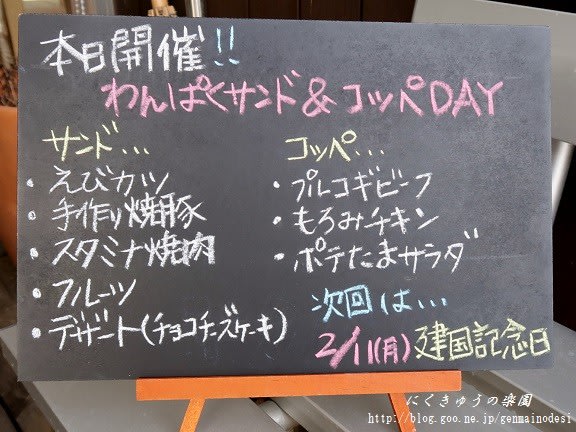 本日開催!!
わんぱくサンド&コッペDAY
サンド...
・えびカツ
・手作り焼豚
・スタミナ焼肉
・フルーツ
・デザート(チョコチーズケーキ)
コッペ...
・プルコギビーフ
・もろみチキン
・ポテたまサラダ
次回は...
2/11(月)建国記念日
にくきゅうの楽園
http://blog.goo.ne.jp/genmainodesi